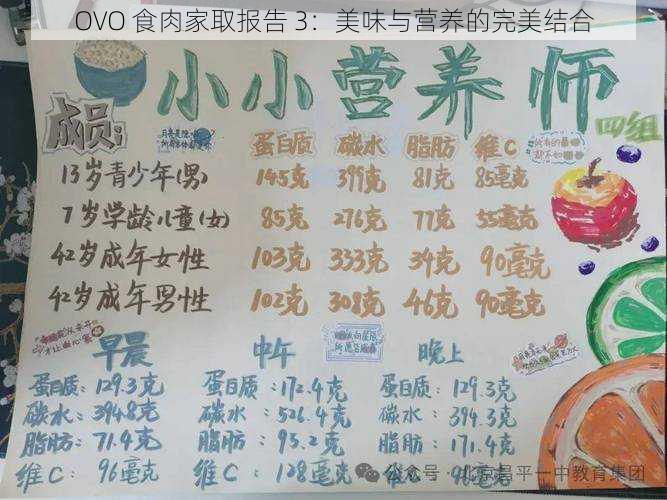 OVO 食肉家取报告 3：美味与营养的完美结合
小小营养师
四组
成员:
蛋白质 碳水 脂肪 维C
13岁青少年(男) 145克 399克 81克 85毫克
7岁学龄儿童(女) 85克 276克 77克 55毫克
42岁成年女性 103克 333克 34克 90毫克
42岁成年男性 102克 308克 46克 90毫克
早晨 中午 晚上
蛋白质：129.3克 蛋白质：172.4克 蛋白质：129.3克
碳水：394.8克 碳水：526.4克 碳水：394.3克
脂肪：71.4克 脂肪：95.2克 脂肪：171.4克
维C：96毫克 维C：128毫克 维C：
公众号·北京昌平一中教育集团